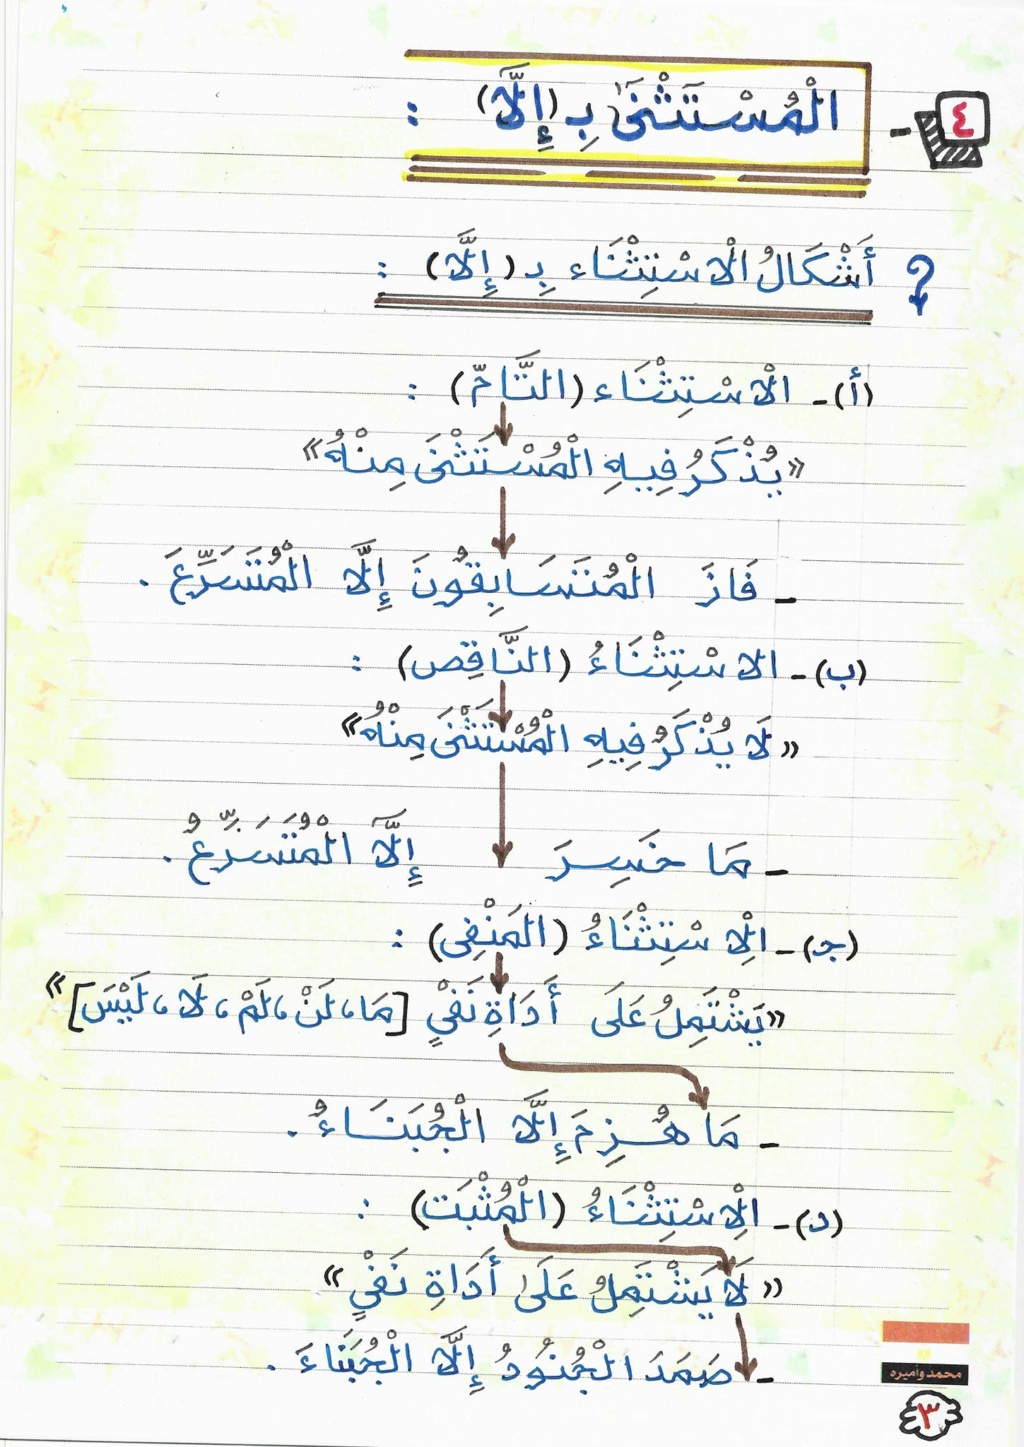 ٤ - الْمُسْتَثْنَىٰ بِـ (إِلَّا) :
أَشْكَالُ الْاسْتِثْنَاء بِـ (إِلَّا) :
(أ) - الْاسْتِثْنَاء (التَّامّ) :
«يُذْكَرُ فِيهِ الْمُسْتَثْنَى مِنْهُ»
- فَازَ الْمُتَسَابِقُونَ إِلَّا الْمُتَسَرِّعَ .
(ب) - الاسْتِثْنَاءُ (النَّاقِص) :
«لَا يُذْكَرُ فِيهِ الْمُسْتَثْنَى مِنْهُ»
- مَا خَسِرَ إِلَّا الْمُتَسَرِّعُ .
(جـ) - الْاِسْتِثْنَاءُ (المَنْفِى) :
«يَشْتَمِلُ عَلَى أَدَاةِ نَفْيٍ [مَا، لَنْ، لَمْ، لَا، لَيْسَ]»
- مَا هُزِمَ إِلَّا الْجُبَنَاءُ .
(د) - الْاِسْتِثْنَاءُ (الْمُثْبَت) :
«لَا يَشْتَمِلُ عَلَىٰ أَدَاةِ نَفْيٍ»
- صَمَدَ الْجُنُودُ إِلَّا الْجُبَنَاءَ .
محمد وأميره
٣